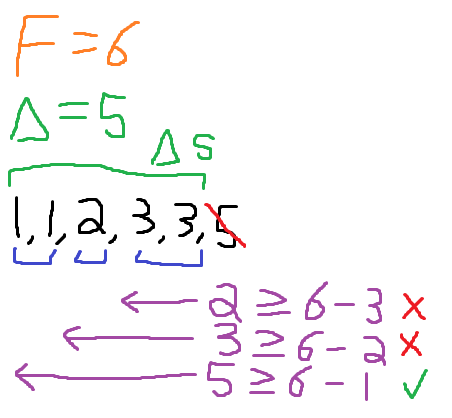 F=6
Δ=5
Δs
1,1,2,3,3,5
2≥6-3 x
3≥6-2 x
5≥6-1 ✓